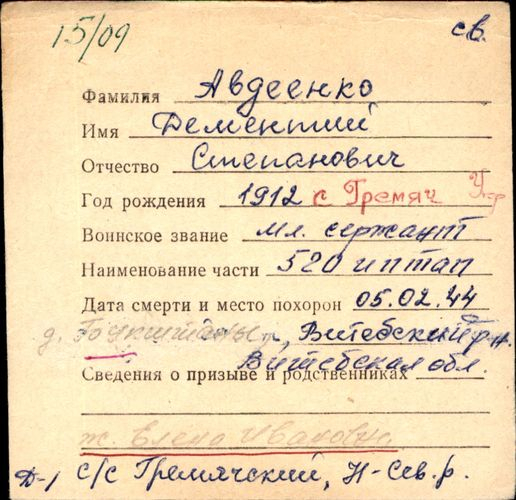 15/09 св.
Фамилия Авдеенко
Имя Дементий
Отчество Степанович
Год рождения 1912 с Гремяч Укр
Воинское звание Мл. сержант
Наименование части 520 иптап
Дата смерти и место похорон 05.02.44
д. , Витебский р-н.
Витебская обл.
Сведения о призыве и родственниках
ж. Елена Ивановна
Д-1 с/с Гремячский, Н-Сев. р.